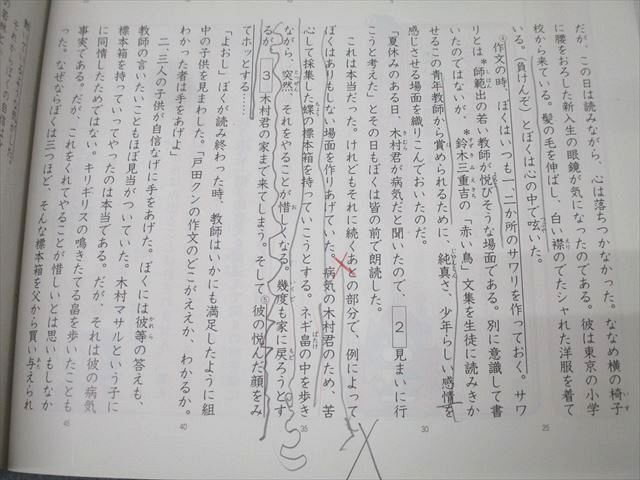 だが、この日は読みながら、心は落ちつかなかった。ななめ横の椅子
に腰をおろした新入生の眼鏡が気になったのである。彼は東京の小学
校から来ている。髪の毛を伸ばし、白い襟のでたシャレた洋服を着て
いる。（負けんぞ）とぼくは心の中で呟いた。
④作文の時、ぼくはいつも一、二か所のサワリを作っておく。サワ
リとは＊師範出の若い教師が悦びそうな場面である。別に意識して書
いたのではないが、＊鈴木三重吉の「赤い鳥」文集を生徒に読みきか
せるこの青年教師から賞められるために、純真さ、少年らしい感情を
感じさせる場面を織りこんでおいたのだ。
「夏休みのある日、木村君が病気だと聞いたので、２見まいに行
こうと考えた」とその日もぼくは皆の前で朗読した。
これは本当だった。けれどもそれに続くあとの部分で、例によって
ぼくはありもしない場面を作りあげていた。病気の木村君のため、苦
心して採集した蝶の標本箱を持っていこうとする。ネギ畠の中を歩き
ながら、突然、それをやることが惜しくなる。幾度も家に戻ろうとす
るが、３木村君の家まで来てしまう。そして⑤彼の悦んだ顔をみ
てホッとする……
「よおし」ぼくが読み終わった時、教師はいかにも満足したように組
中の子供を見まわした。「戸田クンの作文のどこがええか、わかるか。
わかった者は手をあげよ」
二、三人の子供が自信なげに手をあげた。ぼくには彼等の答えも、
教師の言いたいこともほぼ見当がついていた。木村マサルという子に
標本箱を持っていってやったのは本当である。だが、それは彼の病気
に同情したためではない。キリギリスの鳴きたてる畠を歩いたことも
事実である。だが、これをくれてやることが惜しいとは思いもしなか
った。なぜならぼくは三つほど、そんな標本箱を父から買い与えられ
25
30
35
40
45